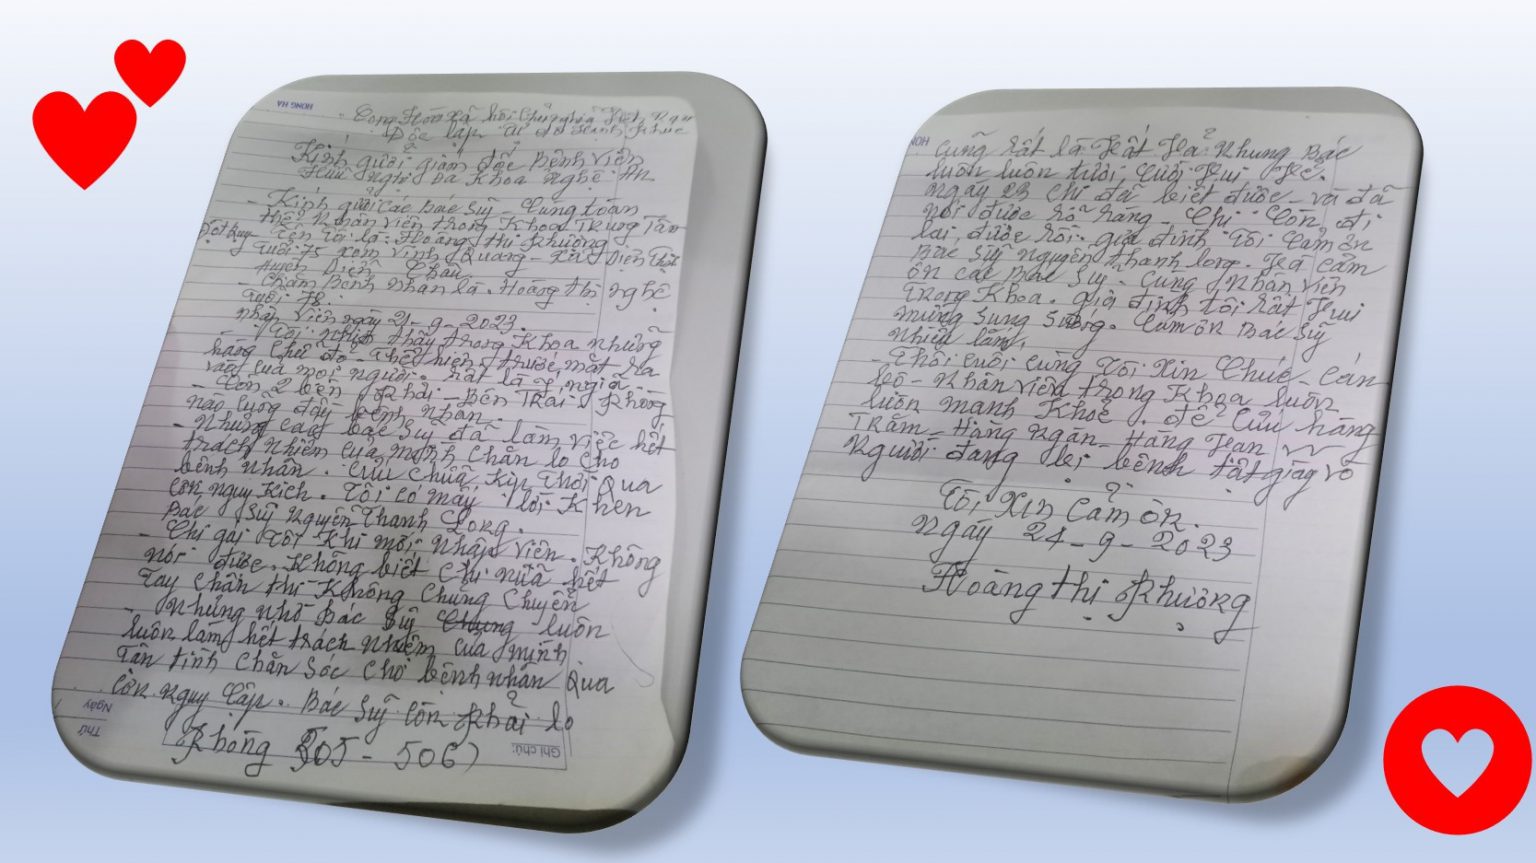 HONG HA
Cộng Hòa Xã hội Chủ nghĩa Việt Nam
Độc lập Tự do Hạnh Phúc
Kính gửi giám đốc Bệnh Viện
Hữu Nghị Đa Khoa Nghệ An
- Kính gửi các Bác Sỹ Cùng toàn
thể Nhân Viên trong Khoa Trung Tâm
Đột quỵ- Tên Tôi là: Hoàng Thị Phượng
Tuổi 75 xóm Vinh Quang - Xã Diễn
Huyện Diễn Châu
- Chăm Bệnh Nhân là. Hoàng thị nghệ
Tuổi 78.
nhập viên ngày 21-9-2023.
Tôi thấy trong Khoa những
hàng chữ đỏ - thể hiện trước mắt ra
vào của mọi người. rất là ý nghĩa
- Còn 2 bên Phải - Bên Trái Phòng
nào cũng đầy bệnh nhân.
- Nhưng các bác Sỹ đã làm việc hết
trách nhiêm của mình chăn lo cho
bênh nhân. Cứu chữa kịp thời qua
cơn nguy kich. Tôi có mấy lời Khen
Bác Sỹ Nguyễn Thanh Long.
- Chị gái tôi Khi mới nhập viên. Không
nói được. Không biết chi nữa hết
Tay chân thi Không chung chuyển
- Nhưng nhờ Bác Sỹ luôn
luôn làm hết trách nhiệm của mình
Tân tình chăn sóc cho bệnh nhân qua
cơn nguy câp. Bác Sỹ còn phải lo
Phòng 505 - 506)
Thứ
Ngày
Ghi chú:
cũng rất là vất vả. Nhưng Bác
luôn luôn tươi cười vui vẻ.
ngày 23 chi đã biết được - và đã
nói được rõ ràng - Chị còn đi
lai được rồi. gia đình tôi cảm ơn
Bác Sỹ Nguyễn Thanh Long. và cảm
ơn các Bác Sỹ. Cùng Nhân Viên
Trong Khoa. gia đình tôi rất vui
mừng sung sướng. Cảm ơn Bác Sỹ
nhiều lắm.
- Thôi cuối cùng Tôi xin Chúc - Cán
bộ - Nhân viên trong Khoa luôn
luôn mạnh Khỏe. để Cứu hàng
Trăm - Hàng ngàn - Hàng vạn
Người đang bị bênh tât giày vò
Tôi Xin Cảm ơn.
Ngày 24-9-2023
Hoàng thị Phượng